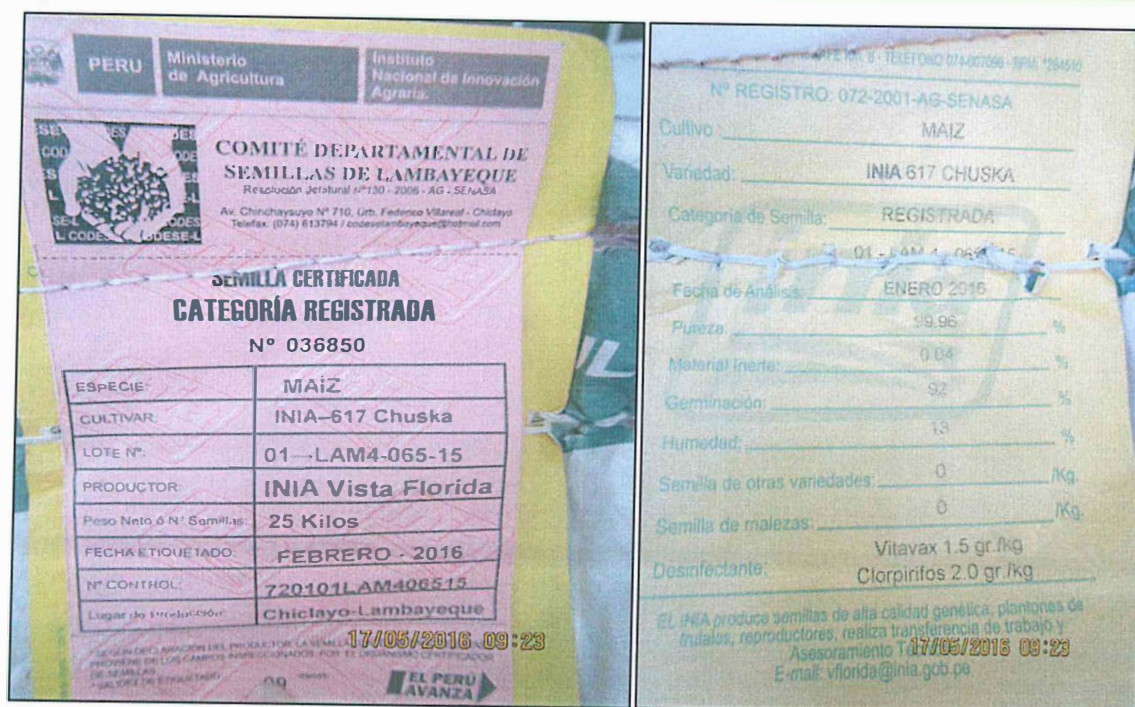 PERU
Ministerio
de Agricultura
Instituto
Nacional de Innovación
Agraria.
COMITÉ DEPARTAMENTAL DE
SEMILLAS DE LAMBAYEQUE
Resolución Jefatural N°130 - 2006 - AG - SENASA
Av. Chinchaysuyo N° 710, Urb. Federico Villareal - Chiclayo
Telefax. (074) 613794 / codeselambayeque@hotmail.com
SEMILLA CERTIFICADA
CATEGORÍA REGISTRADA
N° 036850
ESPECIE: MAÍZ
CULTIVAR: INIA–617 Chuska
LOTE N°: 01–LAM4-065-15
PRODUCTOR: INIA Vista Florida
Peso Neto ó N° Semillas: 25 Kilos
FECHA ETIQUETADO: FEBRERO - 2016
N° CONTROL: 720101LAM406515
Lugar de Producción: Chiclayo-Lambayeque
* SEGÚN DECLARACIÓN DEL PRODUCTOR LA SEMILLA
PROVIENE DE LOS CAMPOS INSPECCIONADOS POR EL ORGANISMO CERTIFICADOR
DE SEMILLAS
* VALIDEZ DE ETIQUETADO 09 meses
17/05/2016 09:23
EL PERÚ
AVANZA
8 - TELEFONO
N° REGISTRO: 072-2001-AG-SENASA
Cultivo: MAIZ
Variedad: INIA 617 CHUSKA
Categoria de Semilla: REGISTRADA
01 - LAM 4 - 065 15
Fecha de Análisis: ENERO 2016
Pureza: 99.96 %
Material Inerte: 0.04 %
Germinación: 92 %
Humedad: 13 %
Semilla de otras variedades: 0 /Kg.
Semilla de malezas: 0 /Kg.
Vitavax 1.5 gr./kg
Desinfectante: Clorpirifos 2.0 gr./kg
EL INIA produce semillas de alta calidad genética, plantones de
frutales, reproductores, realiza transferencia de trabajo y
Asesoramiento
17/05/2016 09:23
E-mail: vflorida@inia.gob.pe